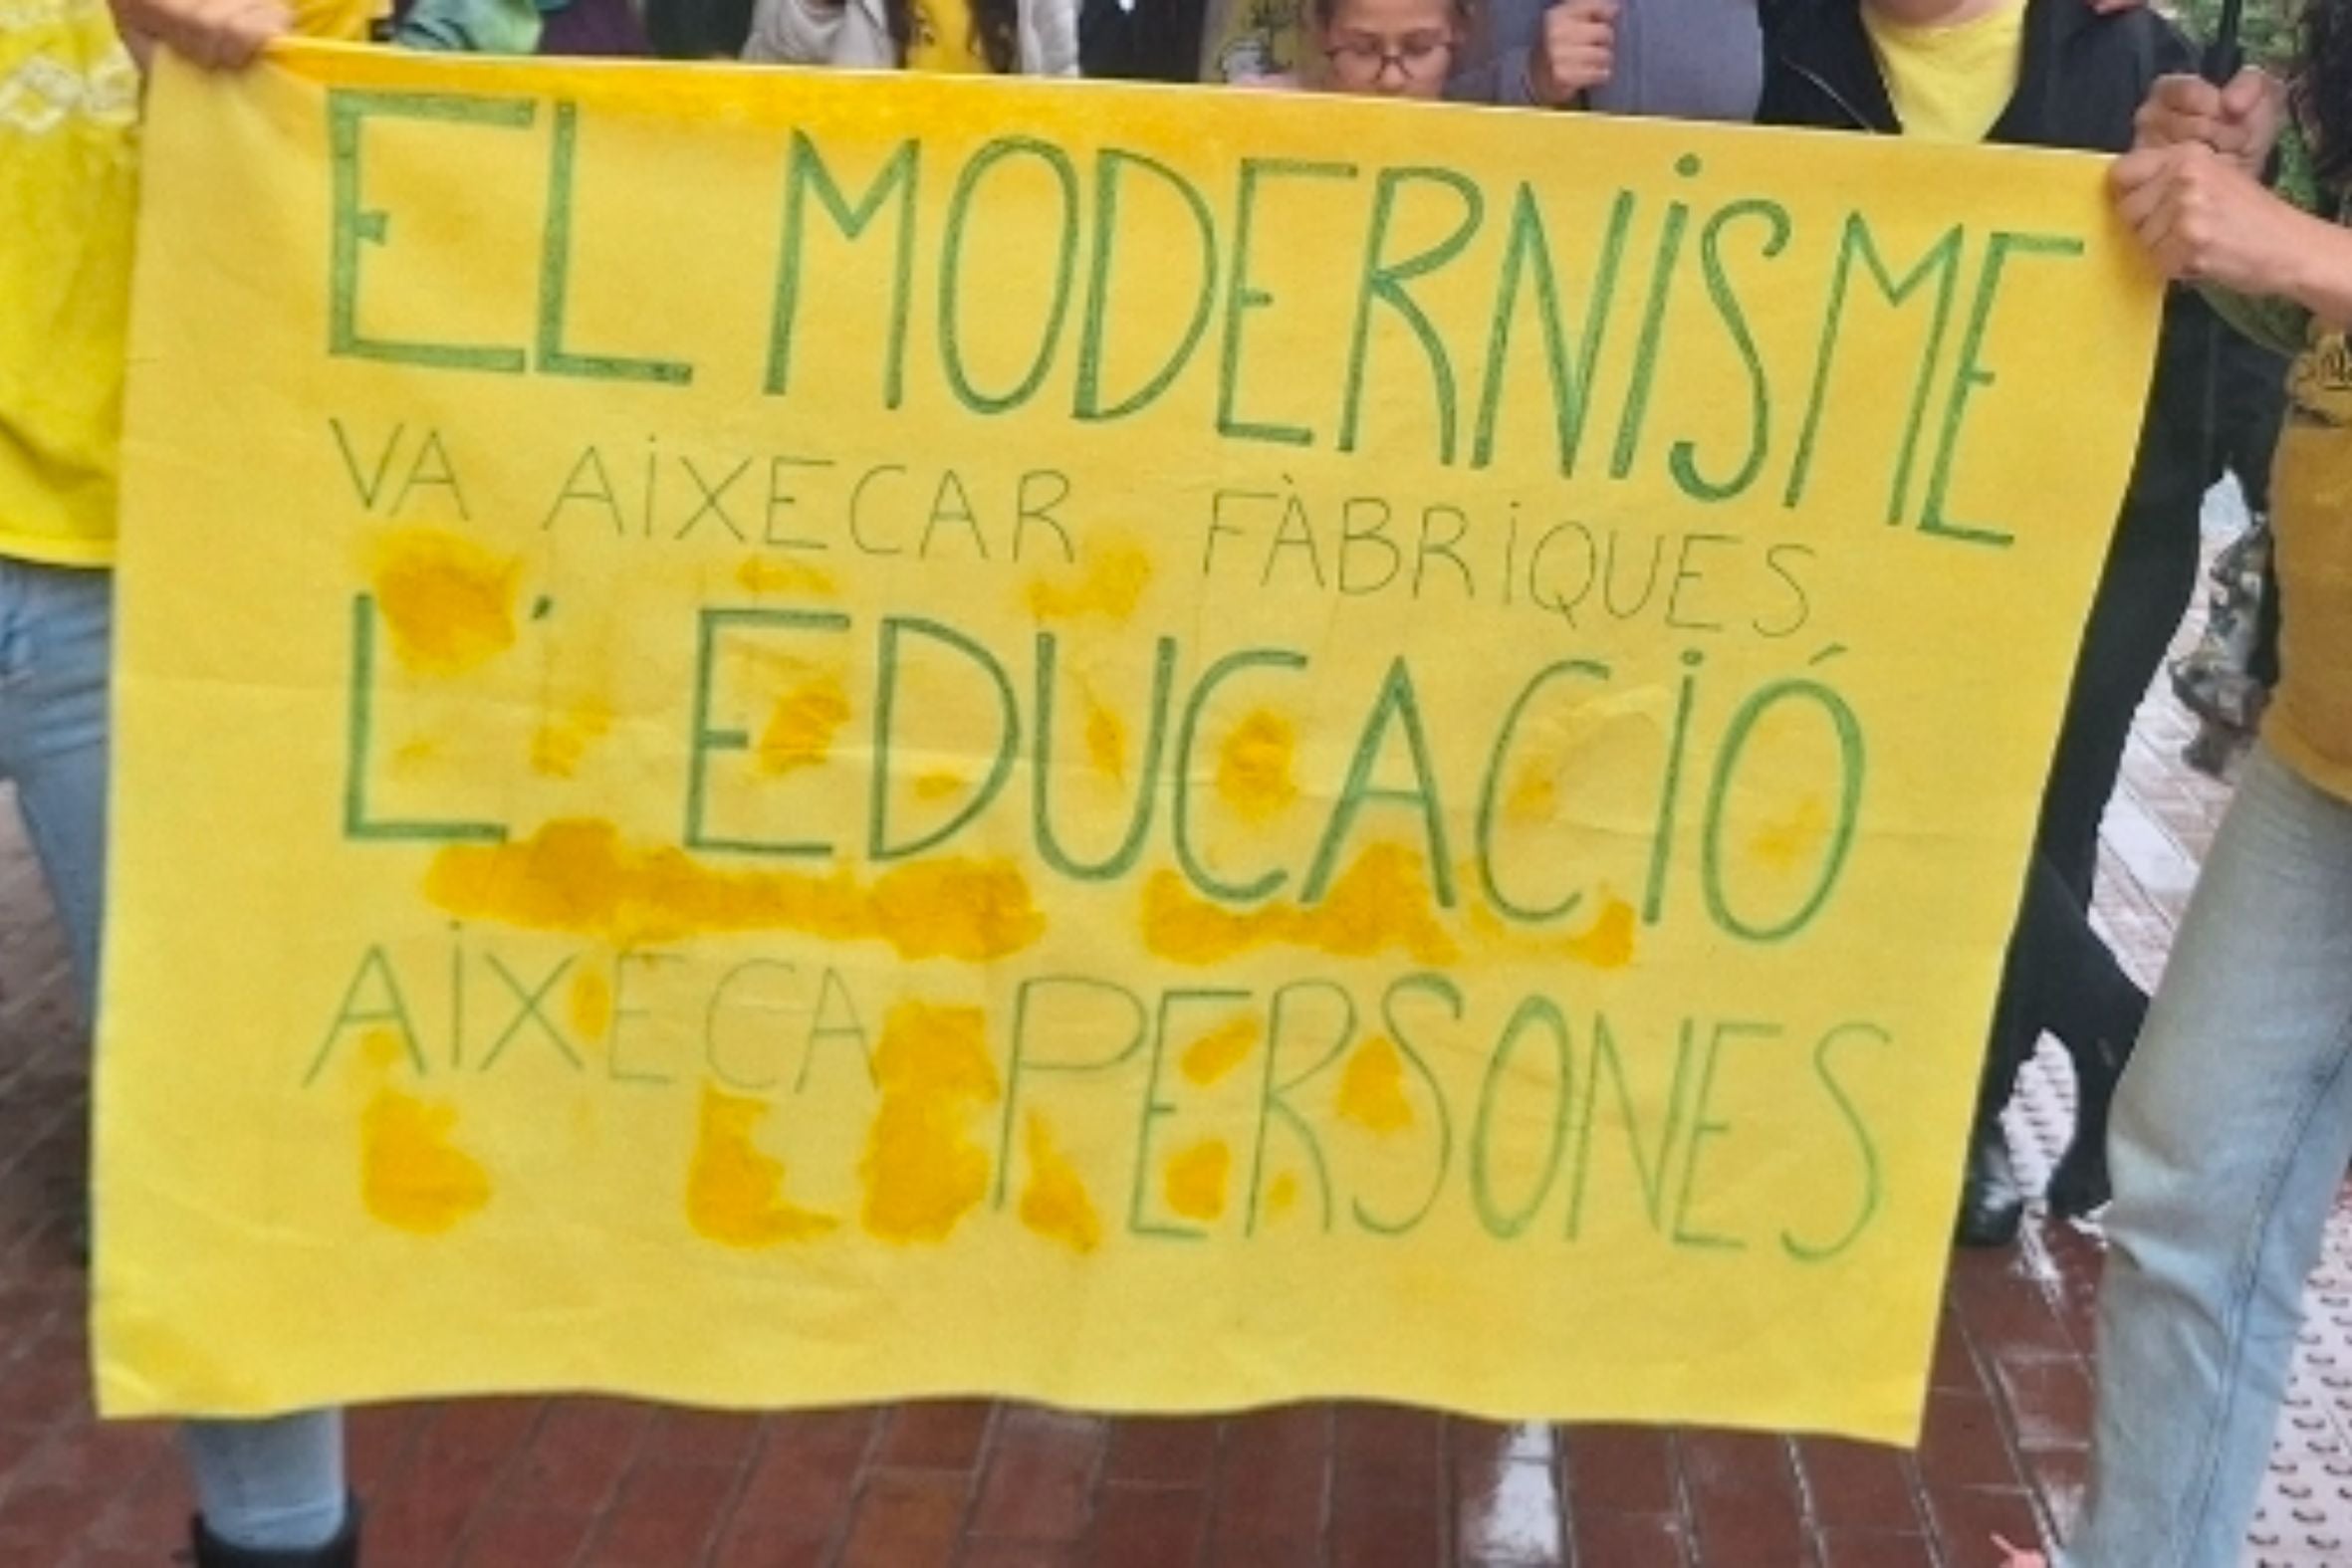 EL MODERNISME
VA AIXECAR FÀBRIQUES
L'EDUCACIÓ
AIXECA PERSONES